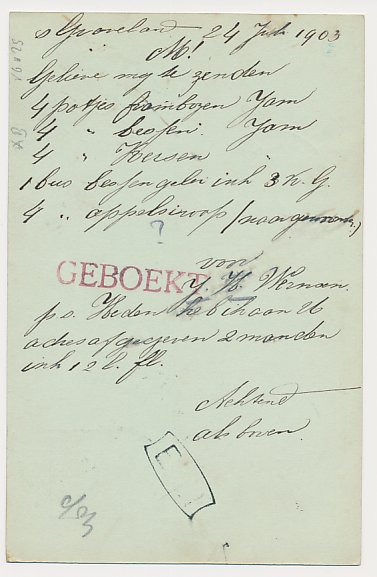 s Graveland 24 Juli 1903
M!
Gelieve mij te zenden
4 potjes frambozen Jam
4 " bessen. Jam
4 " Kersen
1 bus bessengelei inh 3 K. G.
4 " appelsiroop (
?
von
GEBOEKT
J. H.
p.s. Heden heb ik aan U
adres afgegeven 2 manden
inh 12 l. fl.
Achtend
als boven.